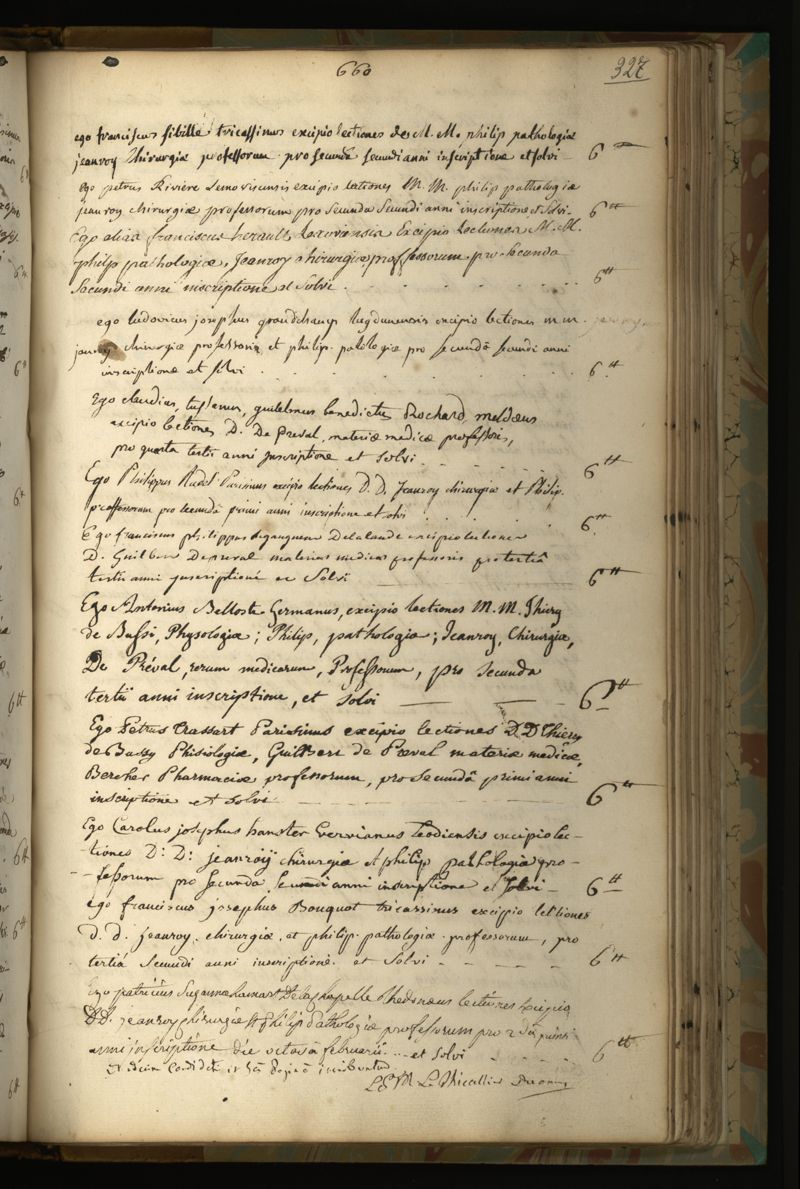 660
327
ego franciscus sibille tricassinus excipio lectiones de M. M. philip pathologiæ
jeanroy chirurgiæ professorum pro secunda secundi anni inscriptione et solvi — 6
ego petrus Riviere Lemovicensis excipio lectiones M. M. philip pathologiæ
jeanroy chirurgiæ professorum pro secunda secundi anni inscriptione et solvi. 6 ⁠tt
Ego franciscus herault Lexoviensis Excipio lectiones M. M.
philip pathologiæ, Jeanroy chirurgiæ professorum pro secunda
secundi anni inscriptione et solvi . . . . 6 tt
ego ludovicus josephus grandchamp lugdunensis excipio lectiones m.m.
jeanroy chirurgiæ professoris et philip pathologiæ pro secundâ secundi anni
inscriptione et solvi . . . . 6 tt
Ego claudius, guilelmus benedictus Rochard meldæus
excipio lectiones D. De Preval, materiæ medicæ professoris,
pro quarta tertii anni inscriptione et solvi . . . . 6 tt
Ego Philippus Parisinus excipio lectiones D. D. Jeanroy chirurgiæ et Philip.
professorum pro secunda primi anni inscriptione et solvi . . . . 6 tt
Ego franciscus philippus Delalande excipio lectiones
D. Guilbert De preval materiæ medicæ professoris pro tertiâ
tertii anni inscriptione et Solvi — 6 tt
Ego Antonius Belloste Germanus, excipio lectiones M. M. Thiery
de Bussi, Physologiæ; Philip, pathologiæ; Jeanroy, Chirurgiæ,
De Préval, rerum medicarum, Professorum, pro secunda
tertii anni inscriptione, et solvi — — 6 tt
Ego Petrus Crassart Parisinus excipio lectiones D. D. Thiery
de Bussy Phisiologiæ, Guilbert de Preval materiæ medicæ,
Bercher Pharmaciæ professorum, pro secundâ primi anni
inscriptione et solvi — 6 tt
Ego Carolus josephus hanster Vervianus Leodiensis excipio lec-
-tiones D: D: jeanroÿ chirurgiæ et philip pathologiæ pro-
-fessorum pro secunda secundi anni inscriptione et solvi — 6 tt
ego franciscus josephus Bouquot tricassinus excipio lectiones
D. D. jeanroy. chirurgiæ. et philip. pathologiæ. professorum, pro
tertiâ secundi anni inscriptione. et Solvi - - - - 6 tt
Ego patricius De la chapelle Rhedonæus lectiones Excipio
D.D. jeanroy chirurgiæ et philip Pathologiæ professorum pro 2dâ primi
anni inscriptione die octavâ februarii ... et solvi . . . . 6 tt
Decanus